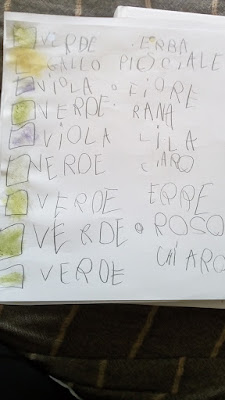 VERDE ERBA
GALLO PICOCIALE
VIOLA FIORE
VERDE RANA
VIOLA LILA
VERDE CIARO
VERDE ERRE
VERDE ROSO
VERDE CHIARO